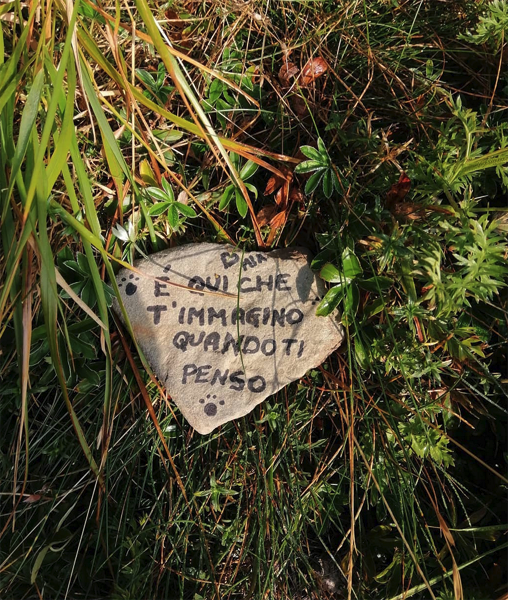 È QUI CHE
T'IMMAGINO
QUANDO TI
PENSO